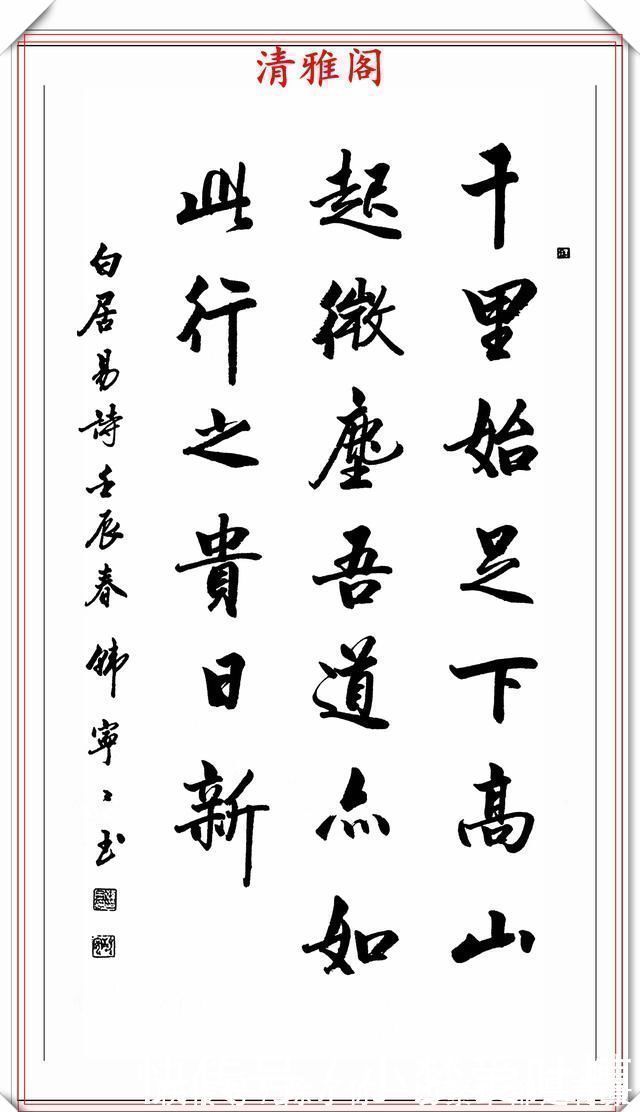 清雅阁
千里始足下高山
起微塵吾道亦如
此行之貴日新
白居易詩壬辰春 韩寧〻书